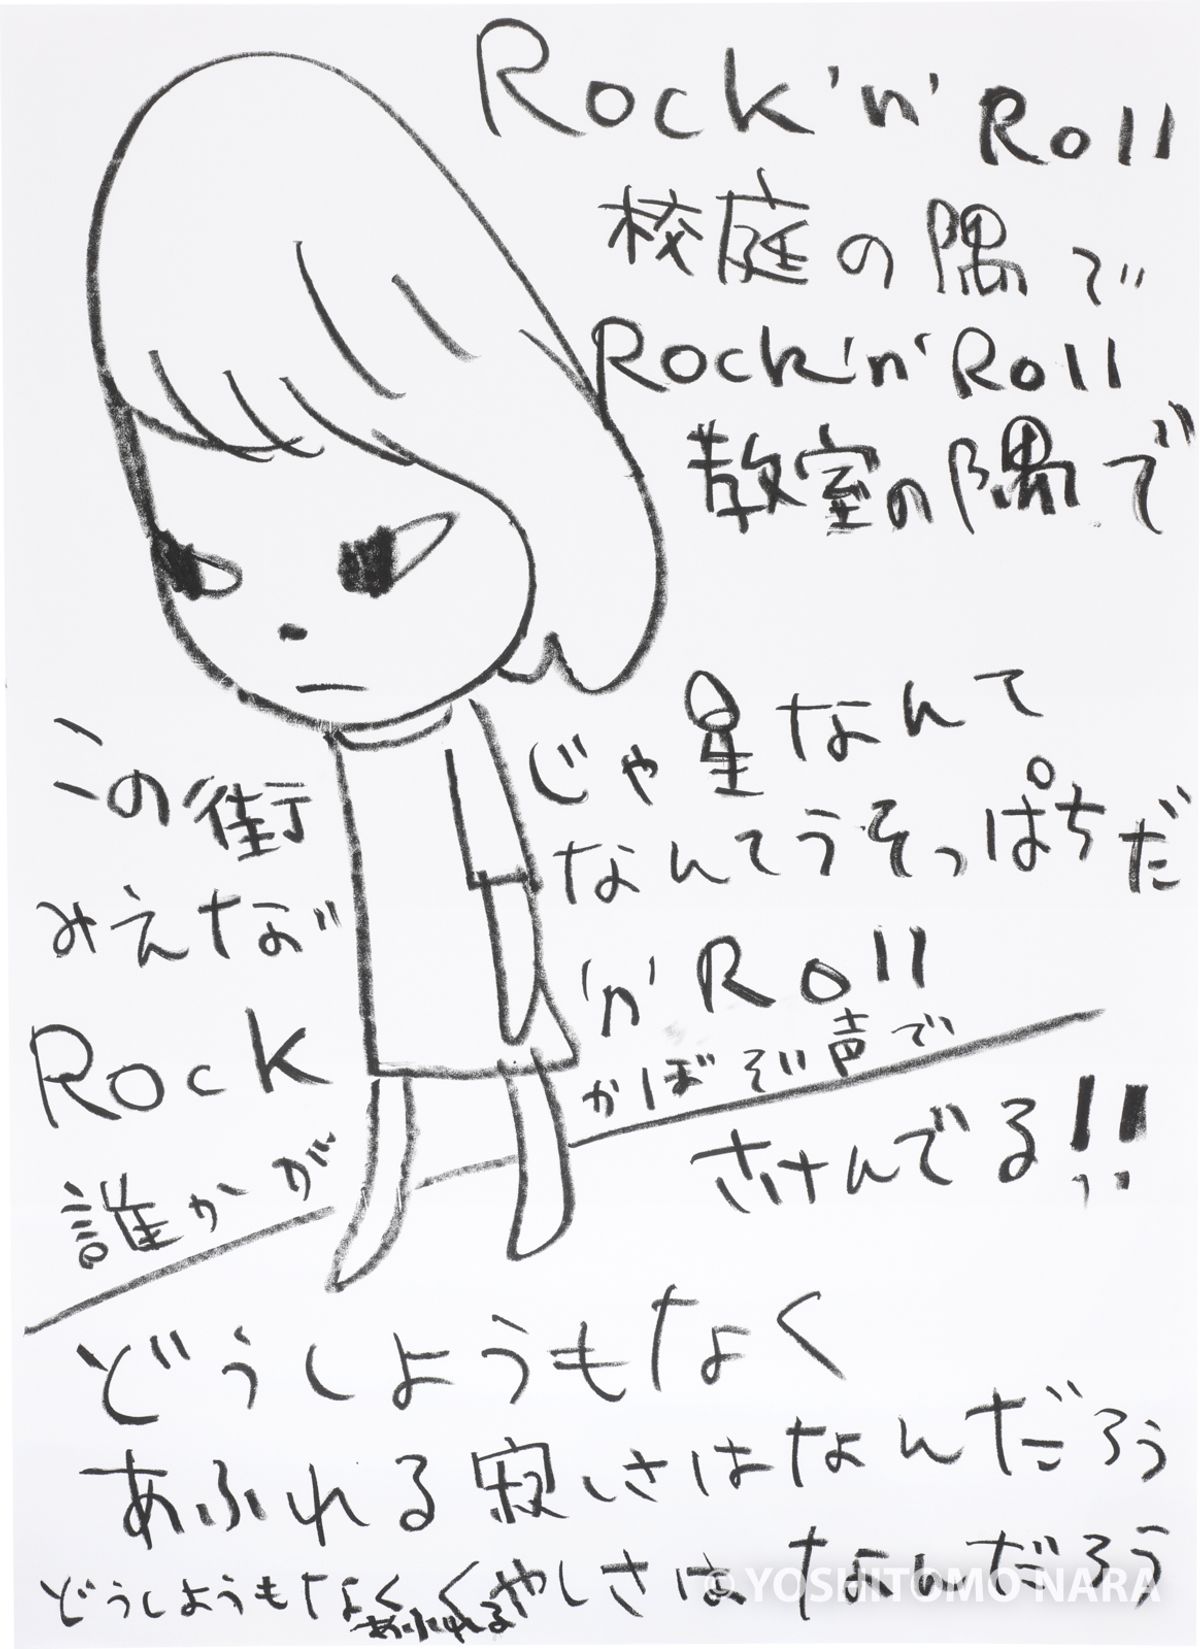 Rock 'n' Roll
校庭の隅で
Rock 'n' Roll
教室の隅で
この街じゃ星なんて
みえなぃ なんてうそっぱちだ
Rock 'n' Roll
誰かが かぼそい声で
さけんでる!!
どうしようもなく
あふれる寂しさはなんだろう
どうしようもなく あふれる くやしさはなんだろう
© YOSHITOMO NARA